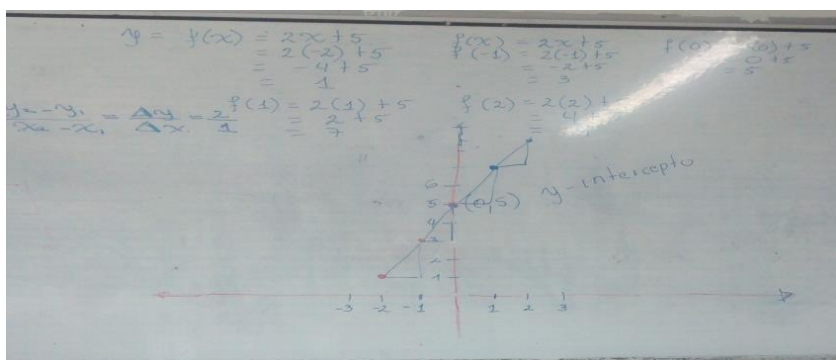 y = f(x) = 2x + 5
= 2(-2) + 5
= -4 + 5
= 1
f(x) = 2x + 5
f(-1) = 2(-1) + 5
= -2 + 5
= 3
f(0) (0) + 5
0 + 5
= 5
y₂ - y₁ / x₂ - x₁ = Δy / Δx = 2 / 1
f(1) = 2(1) + 5
= 2 + 5
= 7
f(2) = 2(2) +
= 4
=
6
5 (0,5) y-intercepto
4
3
2
1
-3 -2 -1 1 2 3